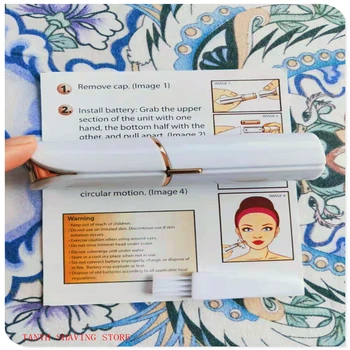 1. Remove cap. (Image 1)
2. Install battery: Grab the upper
section of the unit with one
hand, the bottom half with the
other, and pull apart. (Image 2)
circular motion. (Image 4)
Warning
- Keep out of reach of children.
- Do not use on irritated skin. Discontinue use if skin
irritation occurs.
- Exercise caution when using around eyes.
- Do not rinse removal head under water.
- Do not submerge unit under water.
- Store in a cool dry place when not in use.
- Do not connect battery improperly, charge, or dispose of
in fire. Battery may explode or leak.
- Dispose of old batteries according to all applicable local
regulations.
IMAGE 4
TANIA SHAVING STORE